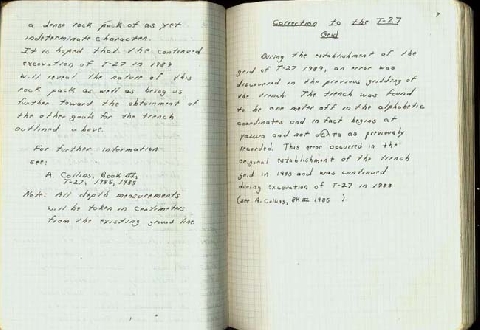 a dense rock pack of as yet
indeterminate character.
It is hoped that the continued
excavation of T-27 in 1989
will reveal the nature of this
rock pack as well as bring us
further toward the attainment of
the other goals for the trench
outlined above.
For further information
see:
A Collins, Book III,
T-27, 1985, 1988
Note: All depth measurements
will be taken in centimeters
from the existing ground line
Correction to the T-27
Grid
During the establishment of the
grid of T-27 1989, an error was
discovered in the previous gridding of
the trench. The trench was found
to be one meter off in the alphabetic
coordinates and in fact begins at
and not as previously
recorded. This error occurred in the
original establishment of the trench
grid in 1985 and was continued
during excavation of T-27 in 1988
(see A. Collins, 1985